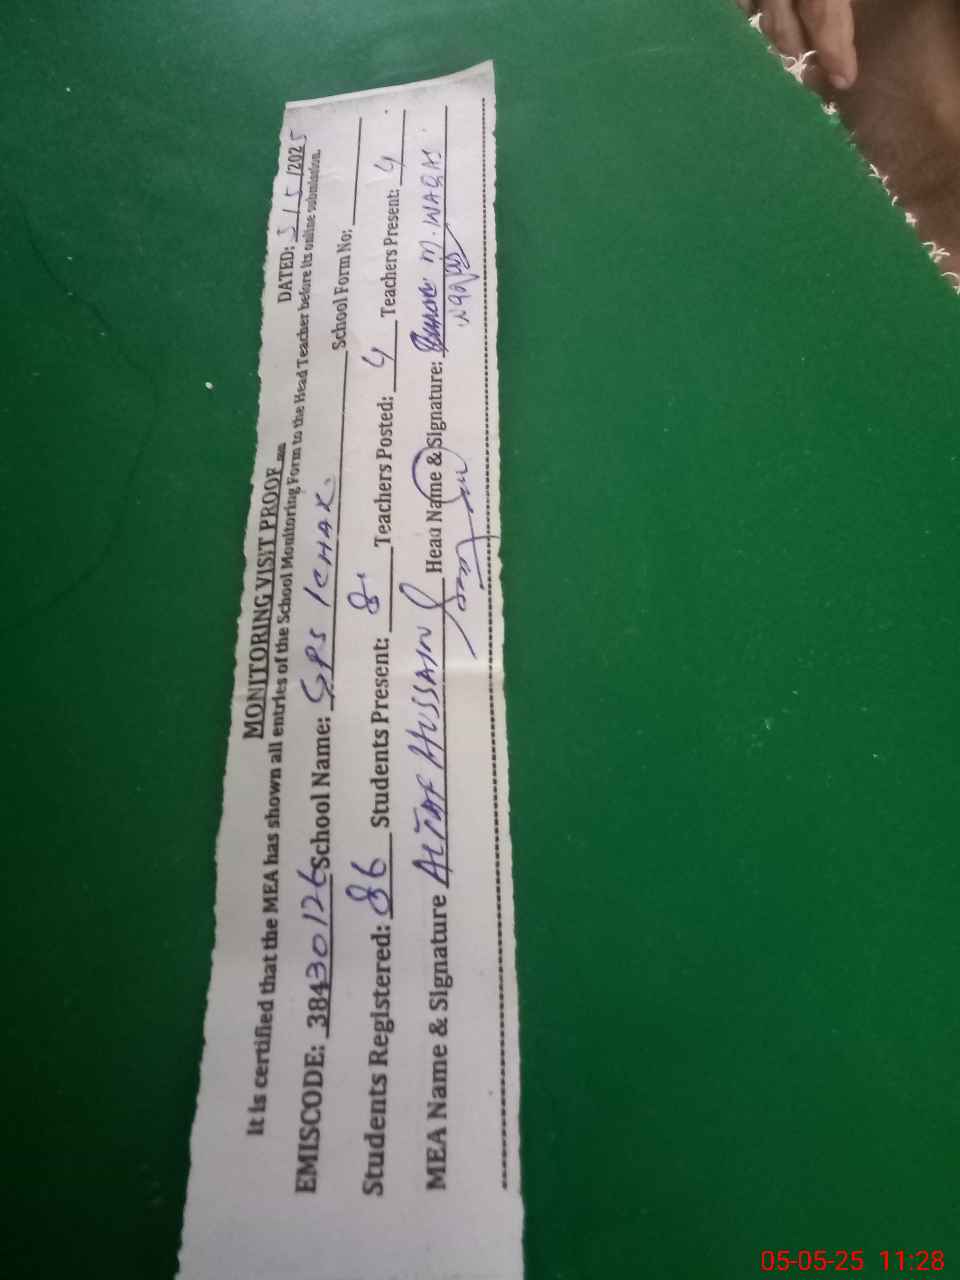 MONITORING VISIT PROOF
DATED: 5/5/2025
It is certified that the MEA has shown all entries of the School Monitoring Form to the Head Teacher before its online submission.
EMISCODE: 38430126 School Name: GPS 1CHAK. School Form No:
Students Registered: 86 Students Present: 81 Teachers Posted: 4 Teachers Present: 4
MEA Name & Signature ALTAF HUSSAIN Head Name & Signature: M. WAQAS
Waqas
05-05-25 11:28